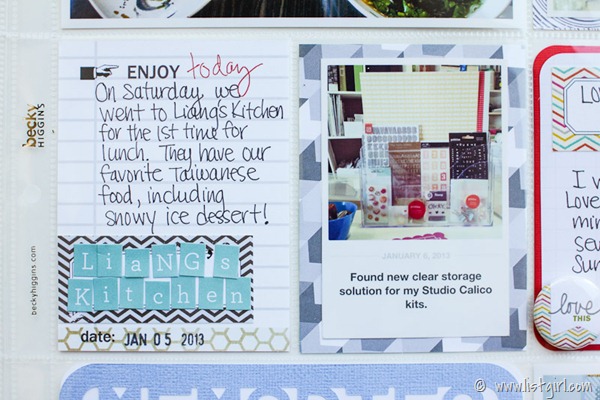 becky
HIGGINS
beckyhiggins.com
ENJOY today
On Saturday, we
went to Liang's Kitchen
for the 1st time for
lunch. They have our
favorite Taiwanese
food, including
snowy ice dessert!
LiaNG's
Kitchen
date: JAN 05 2013
JANUARY 5, 2013
Found new clear storage
solution for my Studio Calico
kits.
LO
I w
Love
min
sew
Sun
love
THIS
© www.listgirl.com